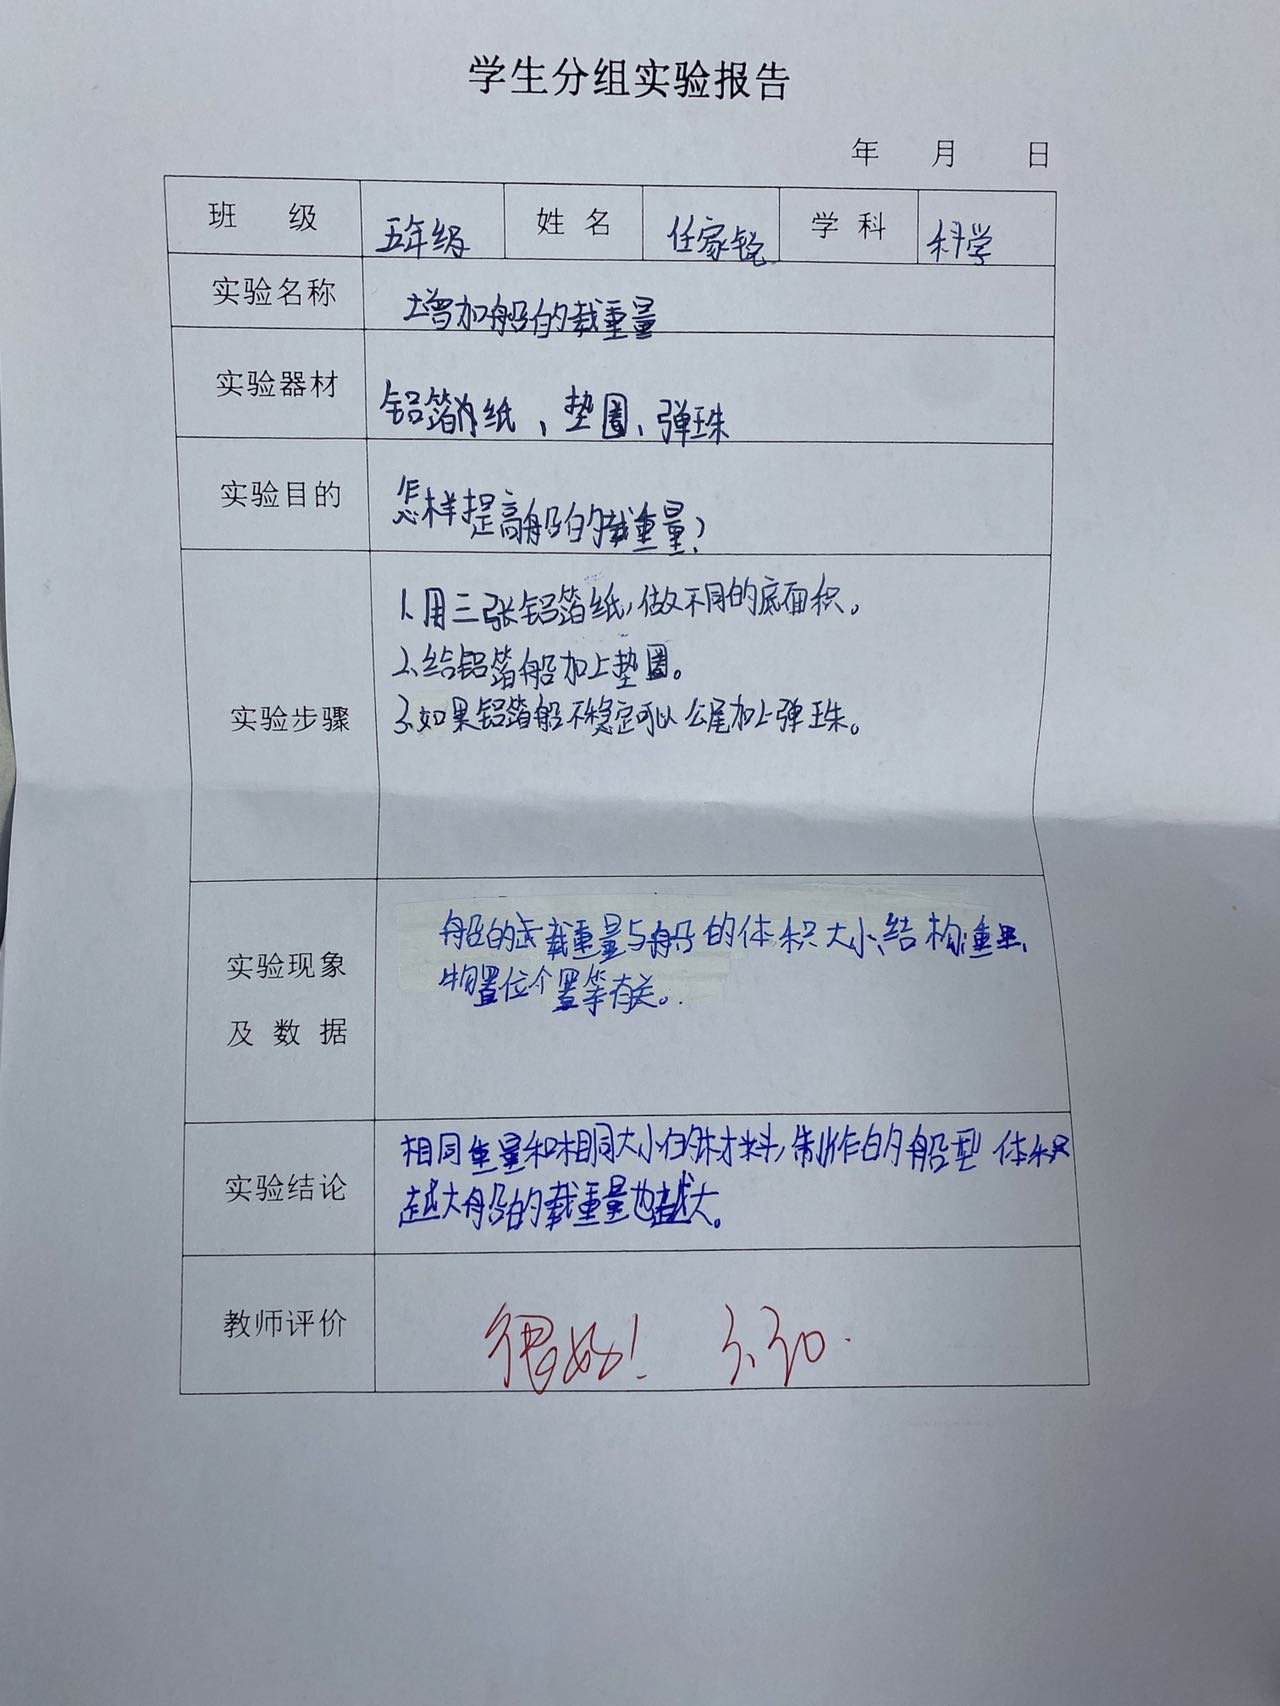 学生分组实验报告
年 月 日
班 级 五年级 姓 名 任家锐 学 科 科学
实验名称 增加船的载重量
实验器材 铝箔纸、垫圈、弹珠
实验目的 怎样提高船的载重量?
实验步骤
1.用三张铝箔纸,做不同的底面积。
2.给铝箔船加上垫圈。
3.如果铝箔船不稳定可以 尾加上弹珠。
实验现象
及 数 据
船的 载重量与船的体积大小、结构、重
物置位个置等有关。
实验结论
相同重量和相同大小的材料,制作的船型 体积
越大船的载重量也越大。
教师评价 很好! 3.30.